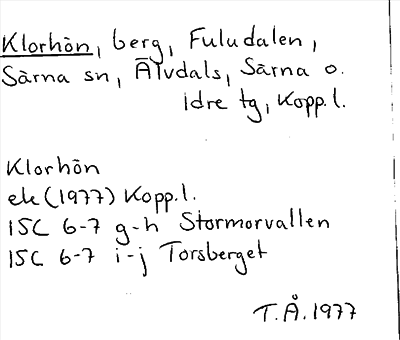 Klorhön, berg, Fuludalen,
Särna sn, Älvdals, Särna o.
idre tg, Kopp.l.
Klorhön
ek (1977) Kopp.l.
15C 6-7 g-h Stormorvallen
15C 6-7 i-j Torsberget
T.Å. 1977